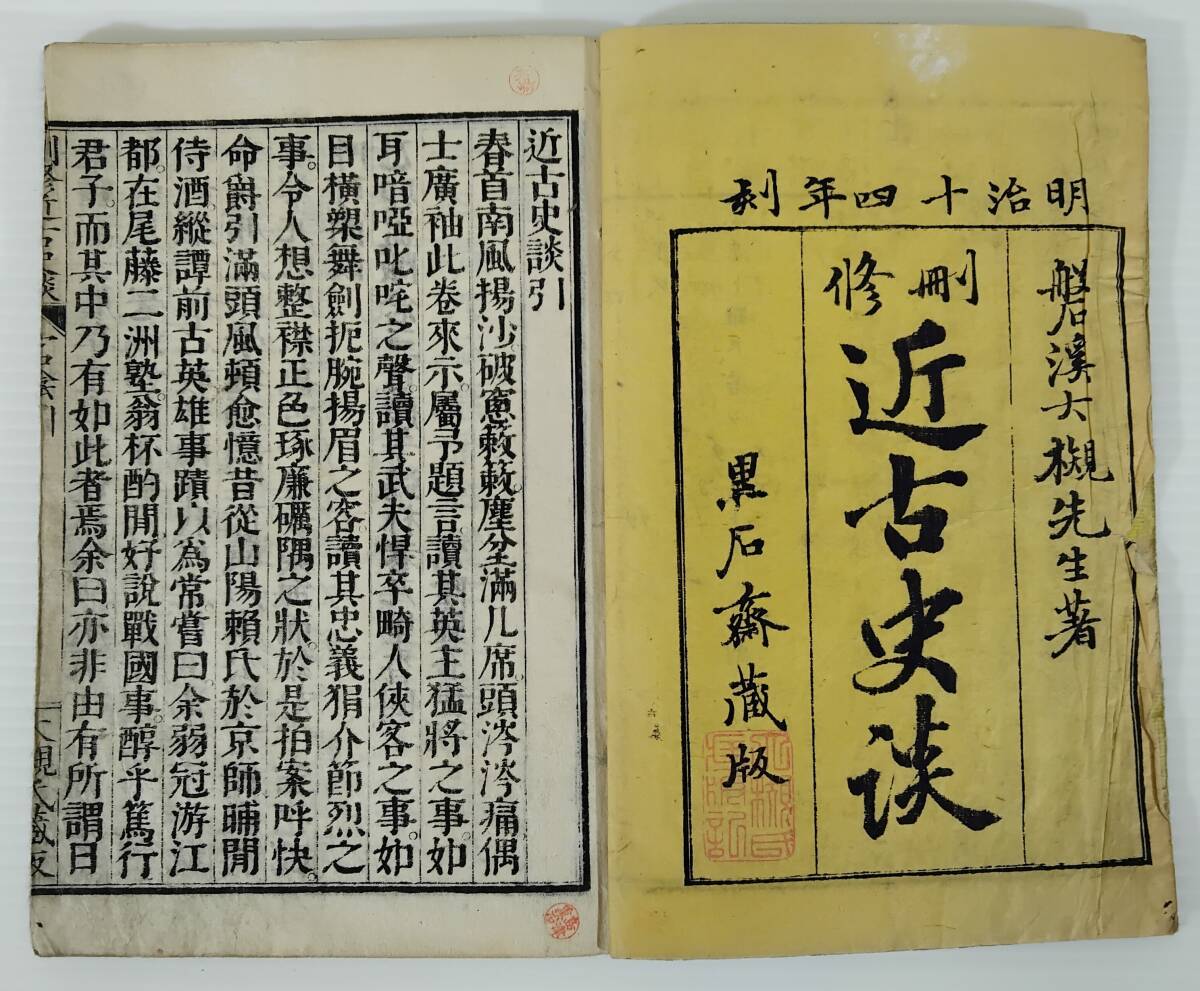 明治十四年刻
磐溪大槻先生著
刪修
近古史談
黒石齋蔵版
近古史談引
春首南風揚沙破窻簌簌塵坌滿几席頭涔涔痛偶
士廣袖此卷來示屬予題言讀其英主猛將之事如
耳喑啞叱咤之聲讀其武夫悍卒畸人俠客之事如
目橫槊舞劍扼腕揚眉之客讀其忠義狷介節烈之
事令人想整襟正色琢廉礪隅之狀於是拍案呼快
命爵引滿頭風頓愈憶昔從山陽賴氏於京師晡閒
侍酒縱譚前古英雄事蹟以為常嘗曰余弱冠游江
都在尾藤二洲塾翁杯酌閒好說戰國事醇乎篤行
君子而其中乃有如此者焉余曰亦非由有所謂日